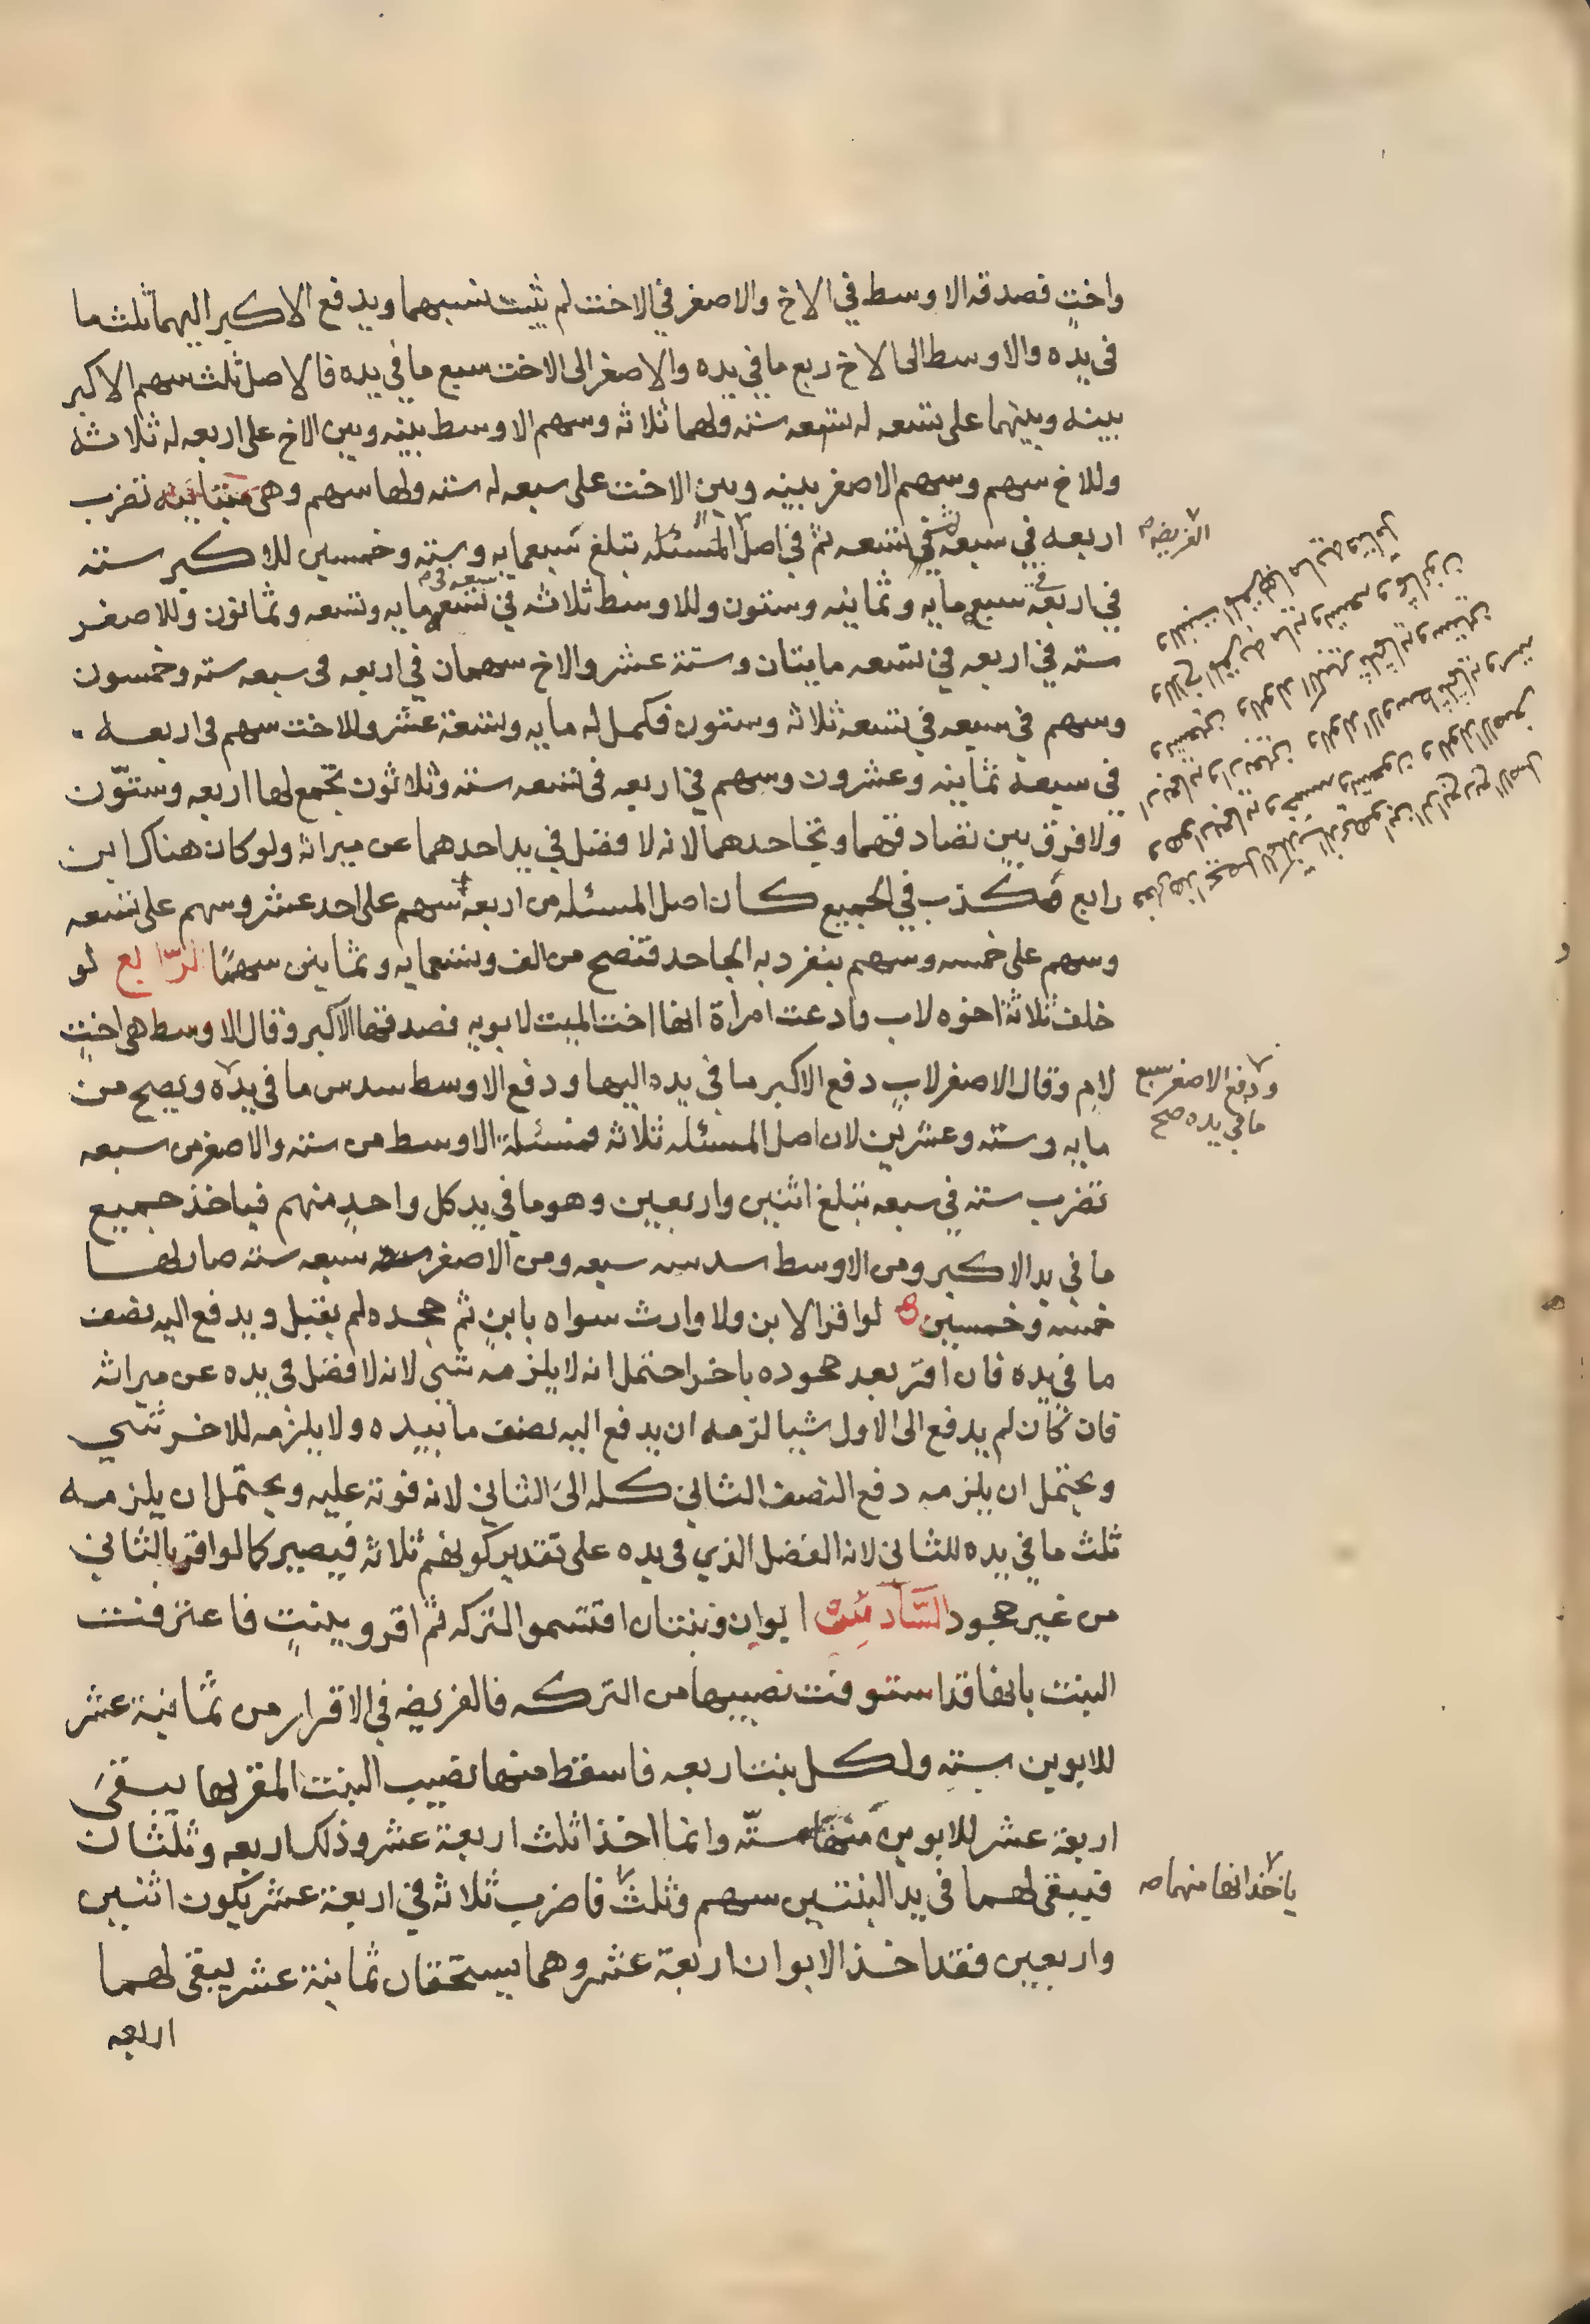 واختٍ فصدقه الاوسط في الاخ والاصغر في الاخت لم يثبت نسبهما ويدفع الاكبر اليهما ثلث ما
في يده والاوسط الى الاخ ربع ما في يده والاصغر الى الاخت سبع ما في يده فالاصل ثلث سهم الاكبر
بينه وبينهما على تسعه له سته ولهما ثلاثه وسهم الاوسط بينه وبين الاخ على اربعه له ثلاثه
وللاخ سهم وسهم الاصغر بينه وبين الاخت على سبعه له سته ولها سهم وهي متباينه تضرب
اربعه في سبعه في تسعه ثم في اصل المسئله تبلغ سبعمايه وسته وخمسين للاكبر سته
الفريضه
في اربعه في سبعه مايه وثمانيه وستون وللاوسط ثلاثه في سبعه في تسعه مايه وتسعه وثمانون وللاصغر
سته في اربعه في تسعه مايتان وستة عشر والاخ سهمان في اربعه في سبعه سته وخمسون
وسهم في سبعه في تسعه ثلاثه وستون فكمل له مايه وتسعة عشر وللاخت سهم في اربعه
في سبعه ثمانيه وعشرون وسهم في اربعه في تسعه سته وثلاثون تجمع لها اربعه وستّون
ولا فرق بين تصادقهما وتجاحدهما لانه لا فضل في يد احدهما عن ميراثه ولو كان هناك ابن
رابع مكذب في الجميع كان اصل المسئله من اربعه سهم على احد عشر وسهم على تسعه
وسهم على خمسه وسهم ينفرد به الجاحد فتصح من الف وتسعمايه وثمانين سهمًا الرّابع لو
خلف ثلاثة اخوه لاب وادعت امراة انها اخت الميت لابويه فصدقها الاكبر وقال الاوسط هي اختٍ
لامٍ وقال الاصغر لابٍ دفع الاكبر ما في يده اليها ودفع الاوسط سدس ما في يده ويصح من
ودفع الاصغر سبع
ما في يده صح
مايه وسته وعشرين لان اصل المسئله ثلاثه فمسئلة الاوسط من سته والاصغر من سبعه
تضرب سته في سبعه تبلغ اثنين واربعين وهو ما في يد كل واحدٍ منهم فياخذ جميع
ما في يد الاكبر ومن الاوسط سدسه سبعه ومن الاصغر سبعه سته صار لها
خمسه وخمسين لو اقر الابن ولا وارث سواه بابنٍ ثم جحده لم يقبل ويدفع اليه نصف
ما في يده فان اقر بعد جحوده باخر احتمل انه لا يلزمه شي لانه لا فضل في يده عن ميراثه
فان كان لم يدفع الى الاول شيا لزمه ان يدفع اليه نصف ما بيده ولا يلزمه للاخر شي
ويحتمل ان يلزمه دفع النصف الثاني كله الى الثاني لانه فوته عليه ويحتمل ان يلزمه
ثلث ما في يده للثاني لانه الفضل الذي في يده على تقدير كونهم ثلاثه فيصير كما لو اقر بالثاني
من غير جحود السّادس ابوان وبنتان اقتسموا التركه ثم اقروا ببنتٍ فاعترفت
البنت بانها قد استوفت نصيبها من التركه فالفريضه في الاقرار من ثمانية عشر
للابوين سته ولكل بنت اربعه فاسقط منها نصيب البنت المقر لها يبقى
اربعة عشر للابوين منها ستّه وانما اخذا ثلث اربعة عشر وذلك اربعه وثلثان
فيبقى لهما في يد البنتين سهم وثلث فاضرب ثلاثه في اربعة عشر يكون اثنين
ياخذانها منهما
واربعين فقد اخذ الابوان اربعة عشر وهما يستحقان ثمانية عشر يبقى لهما
اربعه